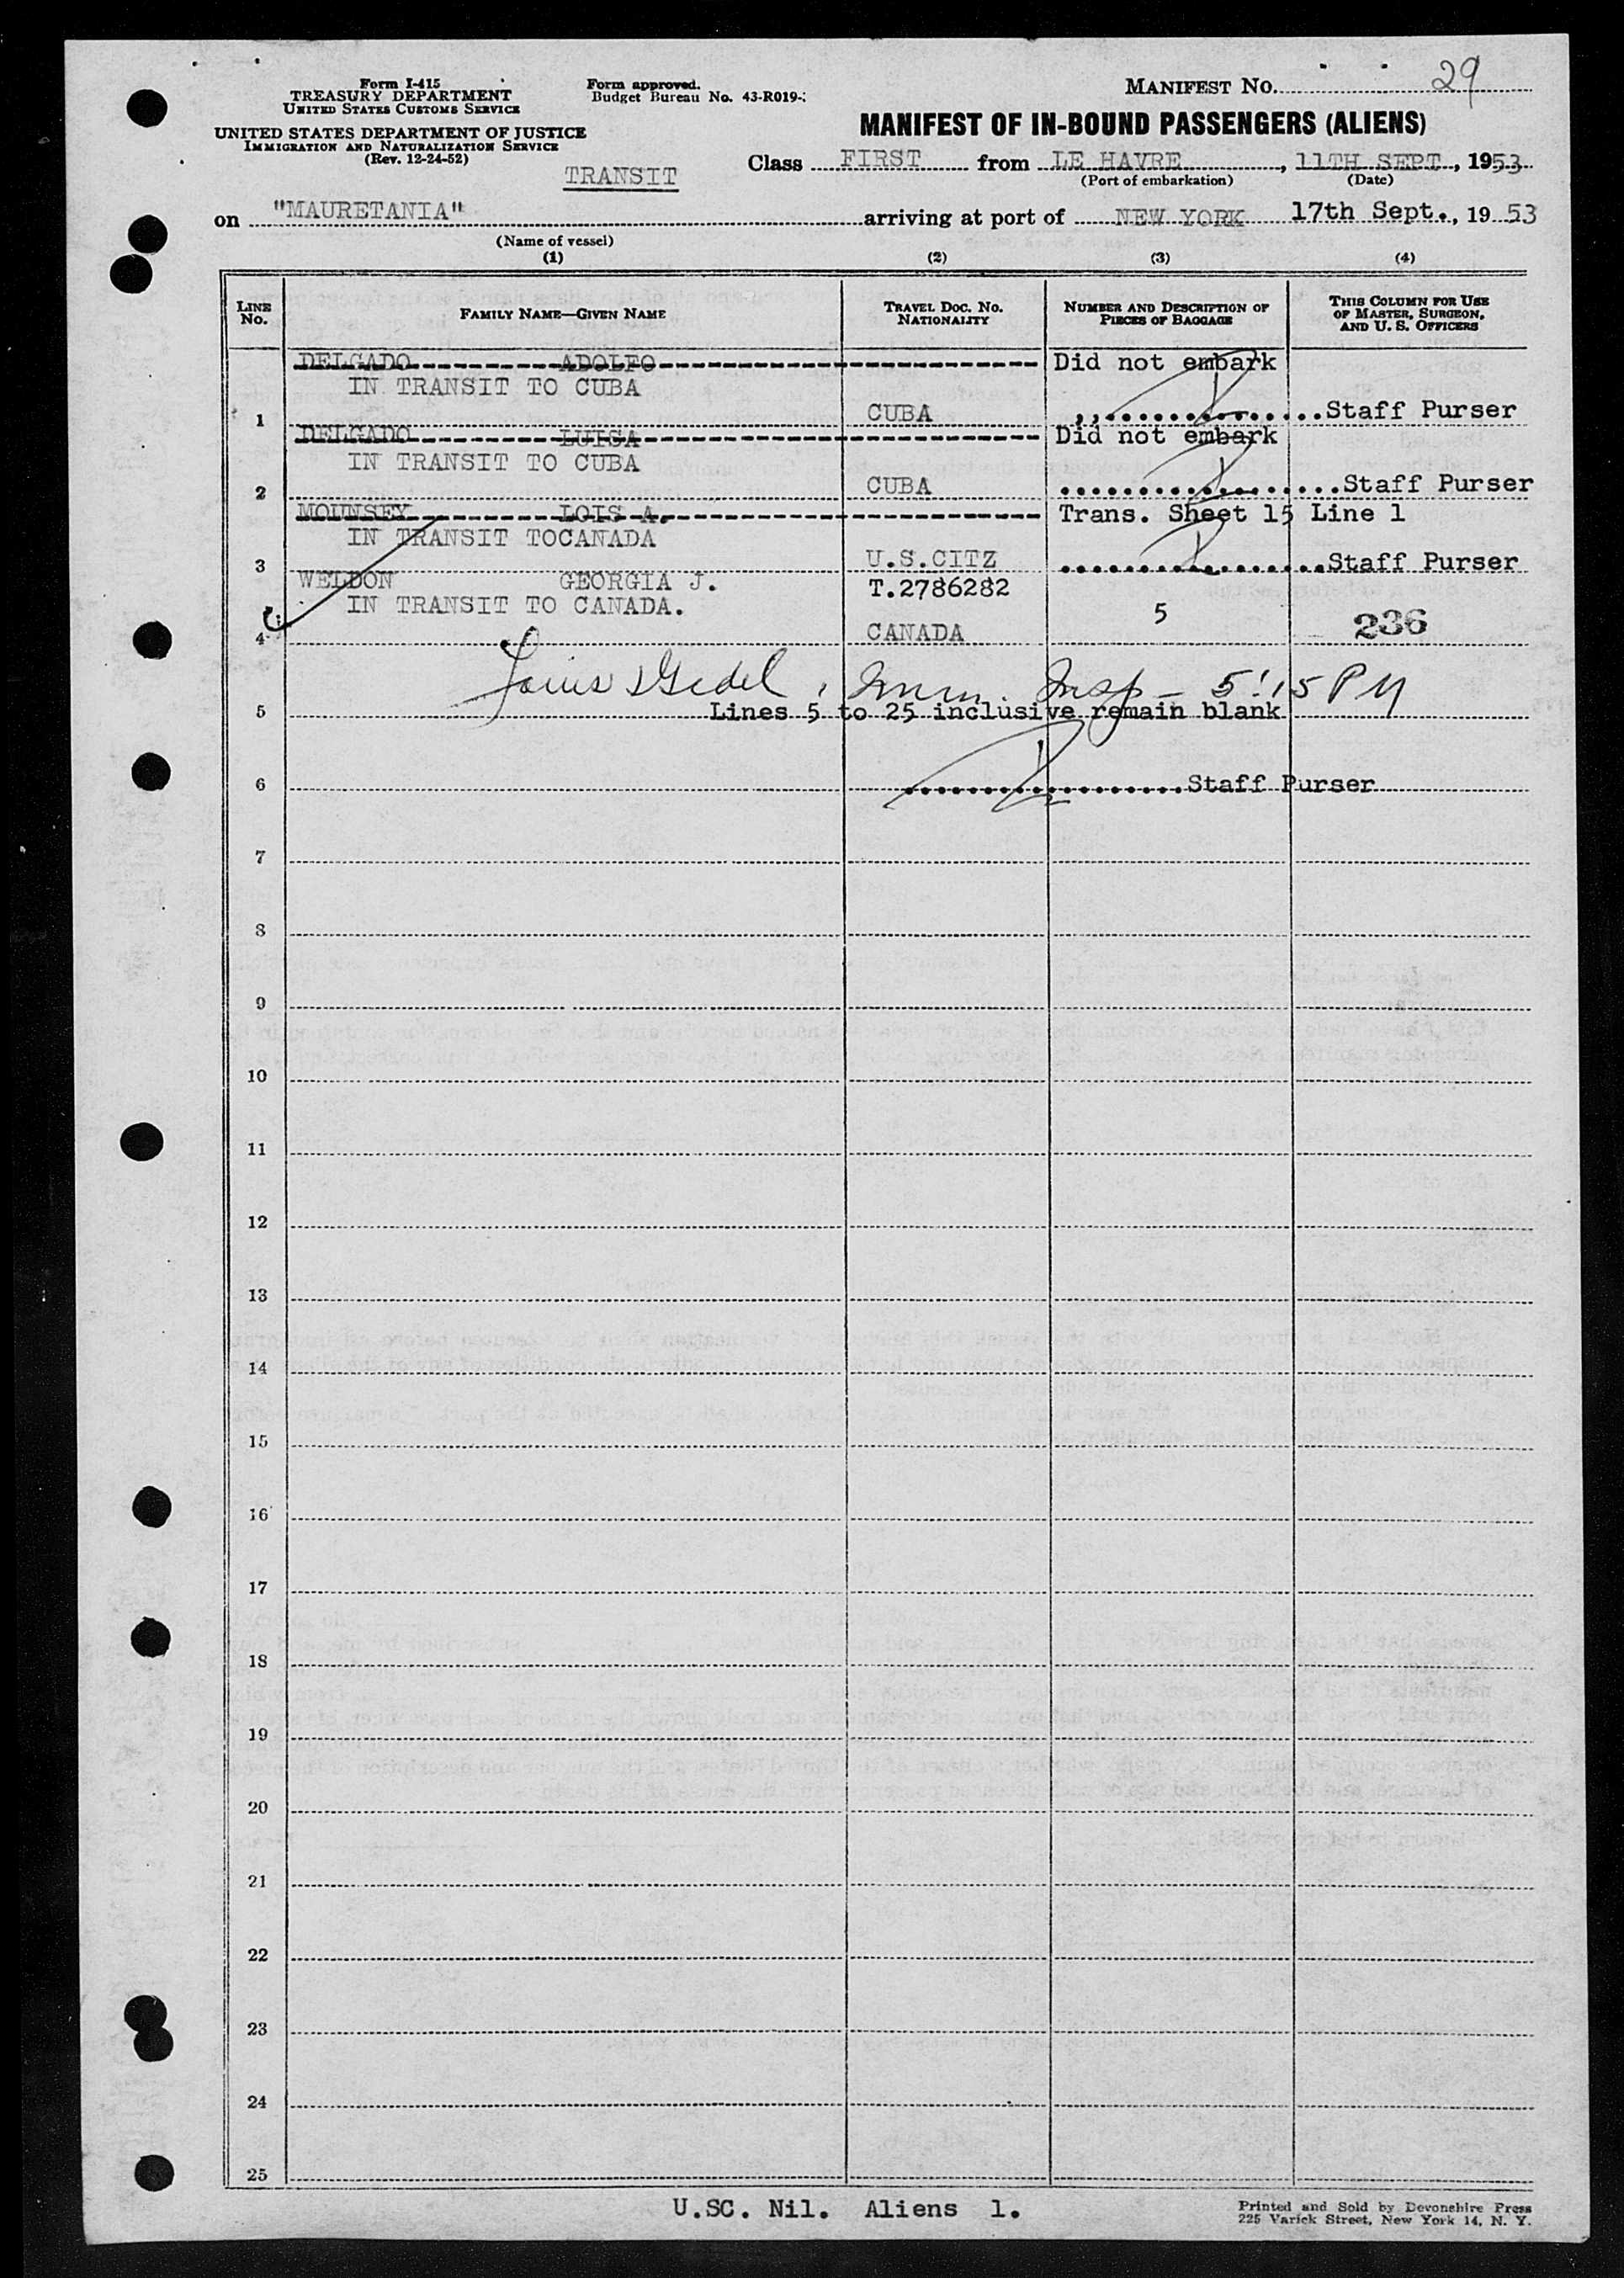 Form I-415
TREASURY DEPARTMENT
UNITED STATES CUSTOMS SERVICE
UNITED STATES DEPARTMENT OF JUSTICE
IMMIGRATION AND NATURALIZATION SERVICE
(Rev. 12-24-52)
Form approved.
Budget Bureau No. 43-R019-
TRANSIT
MANIFEST NO. 29
MANIFEST OF IN-BOUND PASSENGERS (ALIENS)
Class FIRST from LE HAVRE, 11TH SEPT, 1953
(Port of embarkation) (Date)
on "MAURETANIA" arriving at port of NEW YORK 17th Sept., 19 53
(Name of vessel)
(1) (2) (3) (4)
LINE NO. FAMILY NAME—GIVEN NAME TRAVEL DOC. NO. NATIONALITY NUMBER AND DESCRIPTION OF PIECES OF BAGGAGE THIS COLUMN FOR USE OF MASTER, SURGEON, AND U. S. OFFICERS
DELGADO ADOLFO Did not embark
IN TRANSIT TO CUBA
1 CUBA Staff Purser
DELGADO LUISA Did not embark
IN TRANSIT TO CUBA
2 CUBA Staff Purser
MOUNSEY LOIS A. Trans. Sheet 15 Line 1
IN TRANSIT TOCANADA
3 U.S.CITZ Staff Purser
WELDON GEORGIA J. T.2786282
IN TRANSIT TO CANADA. 5
4 CANADA 236
Imm. Insp — 5:15 PM
5 Lines 5 to 25 inclusive remain blank
6 Staff Purser
7
8
9
10
11
12
13
14
15
16
17
18
19
20
21
22
23
24
25
U.SC. Nil. Aliens 1.
Printed and Sold by Devonshire Press
225 Varick Street, New York 14, N. Y.